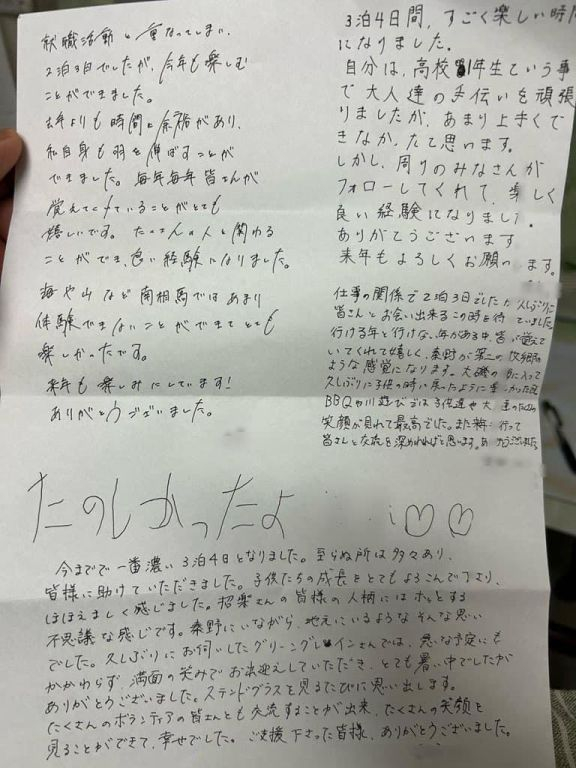 就職活動と重なってしまい、
2泊3日でしたが、今年も楽しむ
ことができました。
去年よりも時間に余裕があり、
私自身も羽を伸ばすことが
できました。毎年毎年皆さんが
覚えてくれていることがとても
嬉しいです。たくさんの人と関わる
ことができ、良い経験になりました。
海や山など南相馬ではあまり
体験できないことができてとても
楽しかったです。
来年も楽しみにしています!
ありがとうございました。
3泊4日間、すごく楽しい時
になりました。
自分は、高校1年生という事
で大人達の手伝いを頑張
りましたが、あまり上手くで
きなかったて思います。
しかし、周りのみなさんが
フォローしてくれて、楽しく
良い経験になりました。
ありがとうございます
来年もよろしくお願い ます。
仕事の関係で2泊3日でしたが 久しぶりに
皆さんとお会い出来るこの時を待っていました。
行ける年と行けない年がある中、皆 覚えて
いてくれて嬉しく、秦野が第二の故郷の
ような感覚になります。大磯の 入って
久しぶりに子供の時に戻ったように楽しかった
BBQや川遊びでは子供達や大 達の
笑顔が見れて最高でした。また 行って
皆さんと交流を深めれればと思います。あ がとうございました
たのしかったよ
今までで一番濃い3泊4日となりました。至らぬ所は多々あり、
皆様に助けていただきました。子供たちの成長をとてもよろこんで下さり、
ほほえましく感じました。招楽さんの皆様の人柄にはホッとする
不思議な感じです。秦野にいながら、地元にいるような そんな思い
でした。久しぶりにお伺いしたグリーングレインさんでは、急な予定にも
かかわらず、満面の笑みでお出迎えしていただき、とても暑い中でしたが
ありがとうございました。ステンドグラスを見るたびに思い出します。
たくさんのボランティアの皆さんとも交流することが出来、たくさんの笑顔を
見ることができて、幸せでした。ご支援下さった皆様、ありがとうございました。